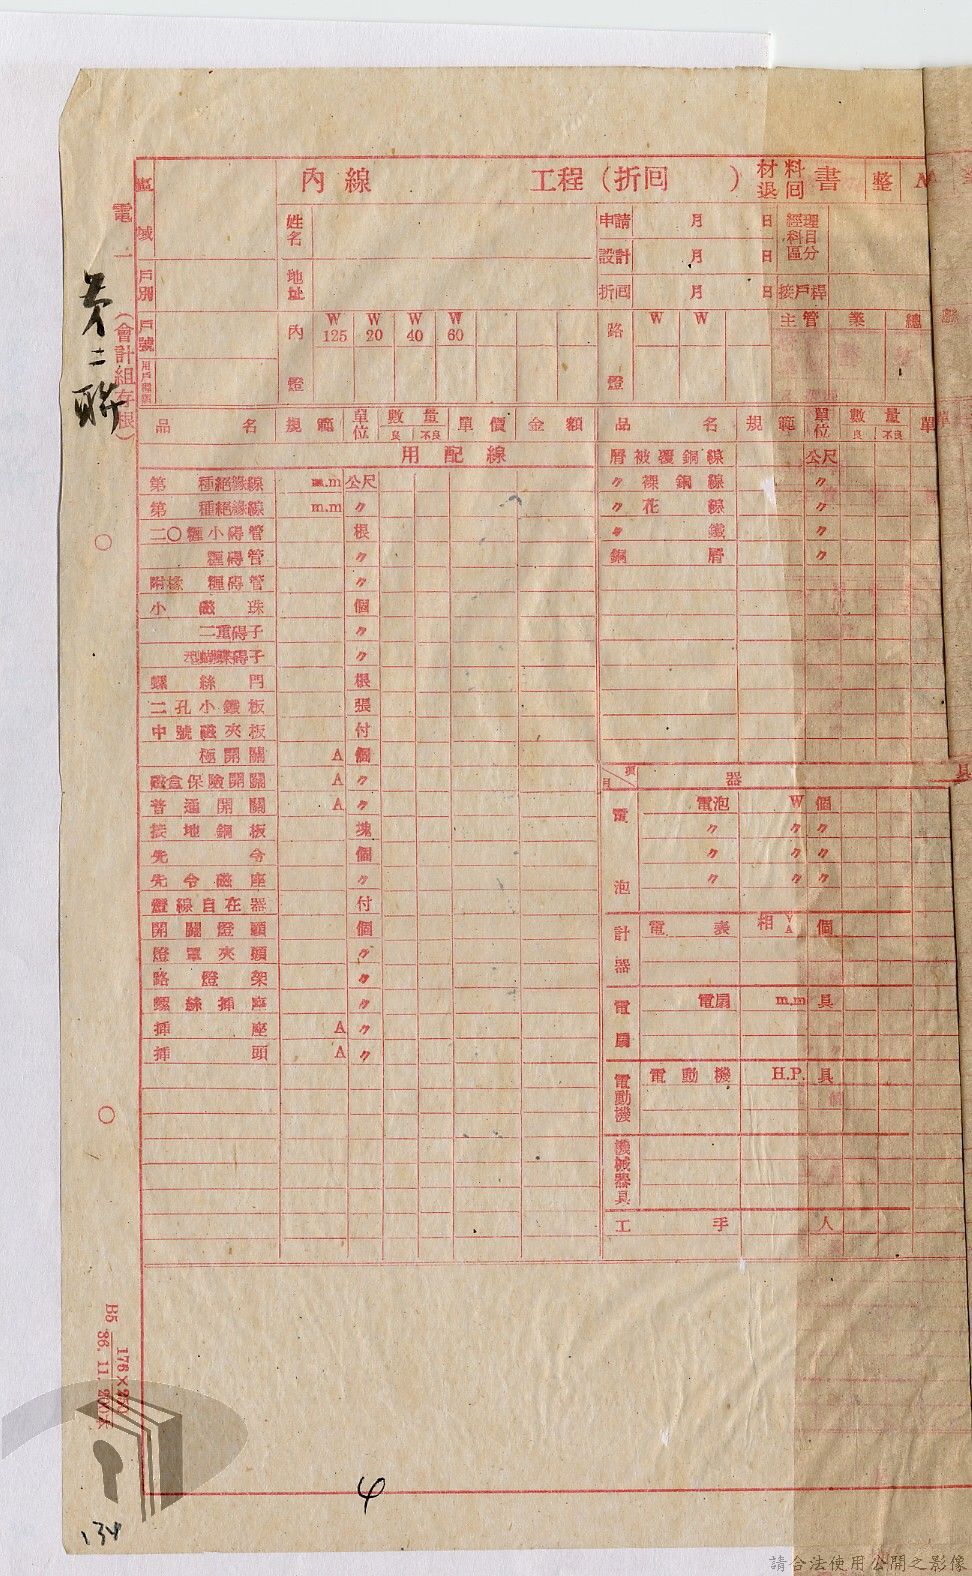 內線 工程（折回 ）材料退回書 整
區域
電一（會計組存根）
第二聯
姓名
申請 月 日 經理科目區分
設計 月 日
戶別 地址
折回 月 日 接戶桿
戶號 內燈 W125 W20 W40 W60 路燈 W W 主管 業 總
品名 規範 單位 數量 良 不良 單價 金額 品名 規範 單位 數量 良 不良 單
用配線
第 種絕緣線 m.m 公尺
第 種絕緣線 m.m 〃
二〇糎小碍管 根
糎碍管 〃
附椽 糎碍管 〃
小磁珠 個
二重碍子 〃
碍子 〃
螺絲門 根
二孔小鐵板 張
中號磁夾板 付
極開關 A 個
磁盒保險開關 A 〃
普通開關 A 〃
接地銅板 塊
先令 個
先令磁座 〃
燈線自在器 付
開關燈頭 個
燈罩夾頭 〃
路燈架 〃
螺絲插座 〃
插座 A 〃
插頭 A 〃
屑被覆銅線 公尺
〃裸銅線 〃
〃花線 〃
〃鐵 〃
銅屑 〃
項目 器 具
電泡 電泡 W 個
〃 〃 〃
〃 〃 〃
〃 〃 〃
計器 電表 相 V A 個
電扇 電扇 m.m 具
電動機 電動機 H.P. 具
機械器具
工手 人
B5 176×250
36. 11. 200本
4
134
請合法使用公開之影像